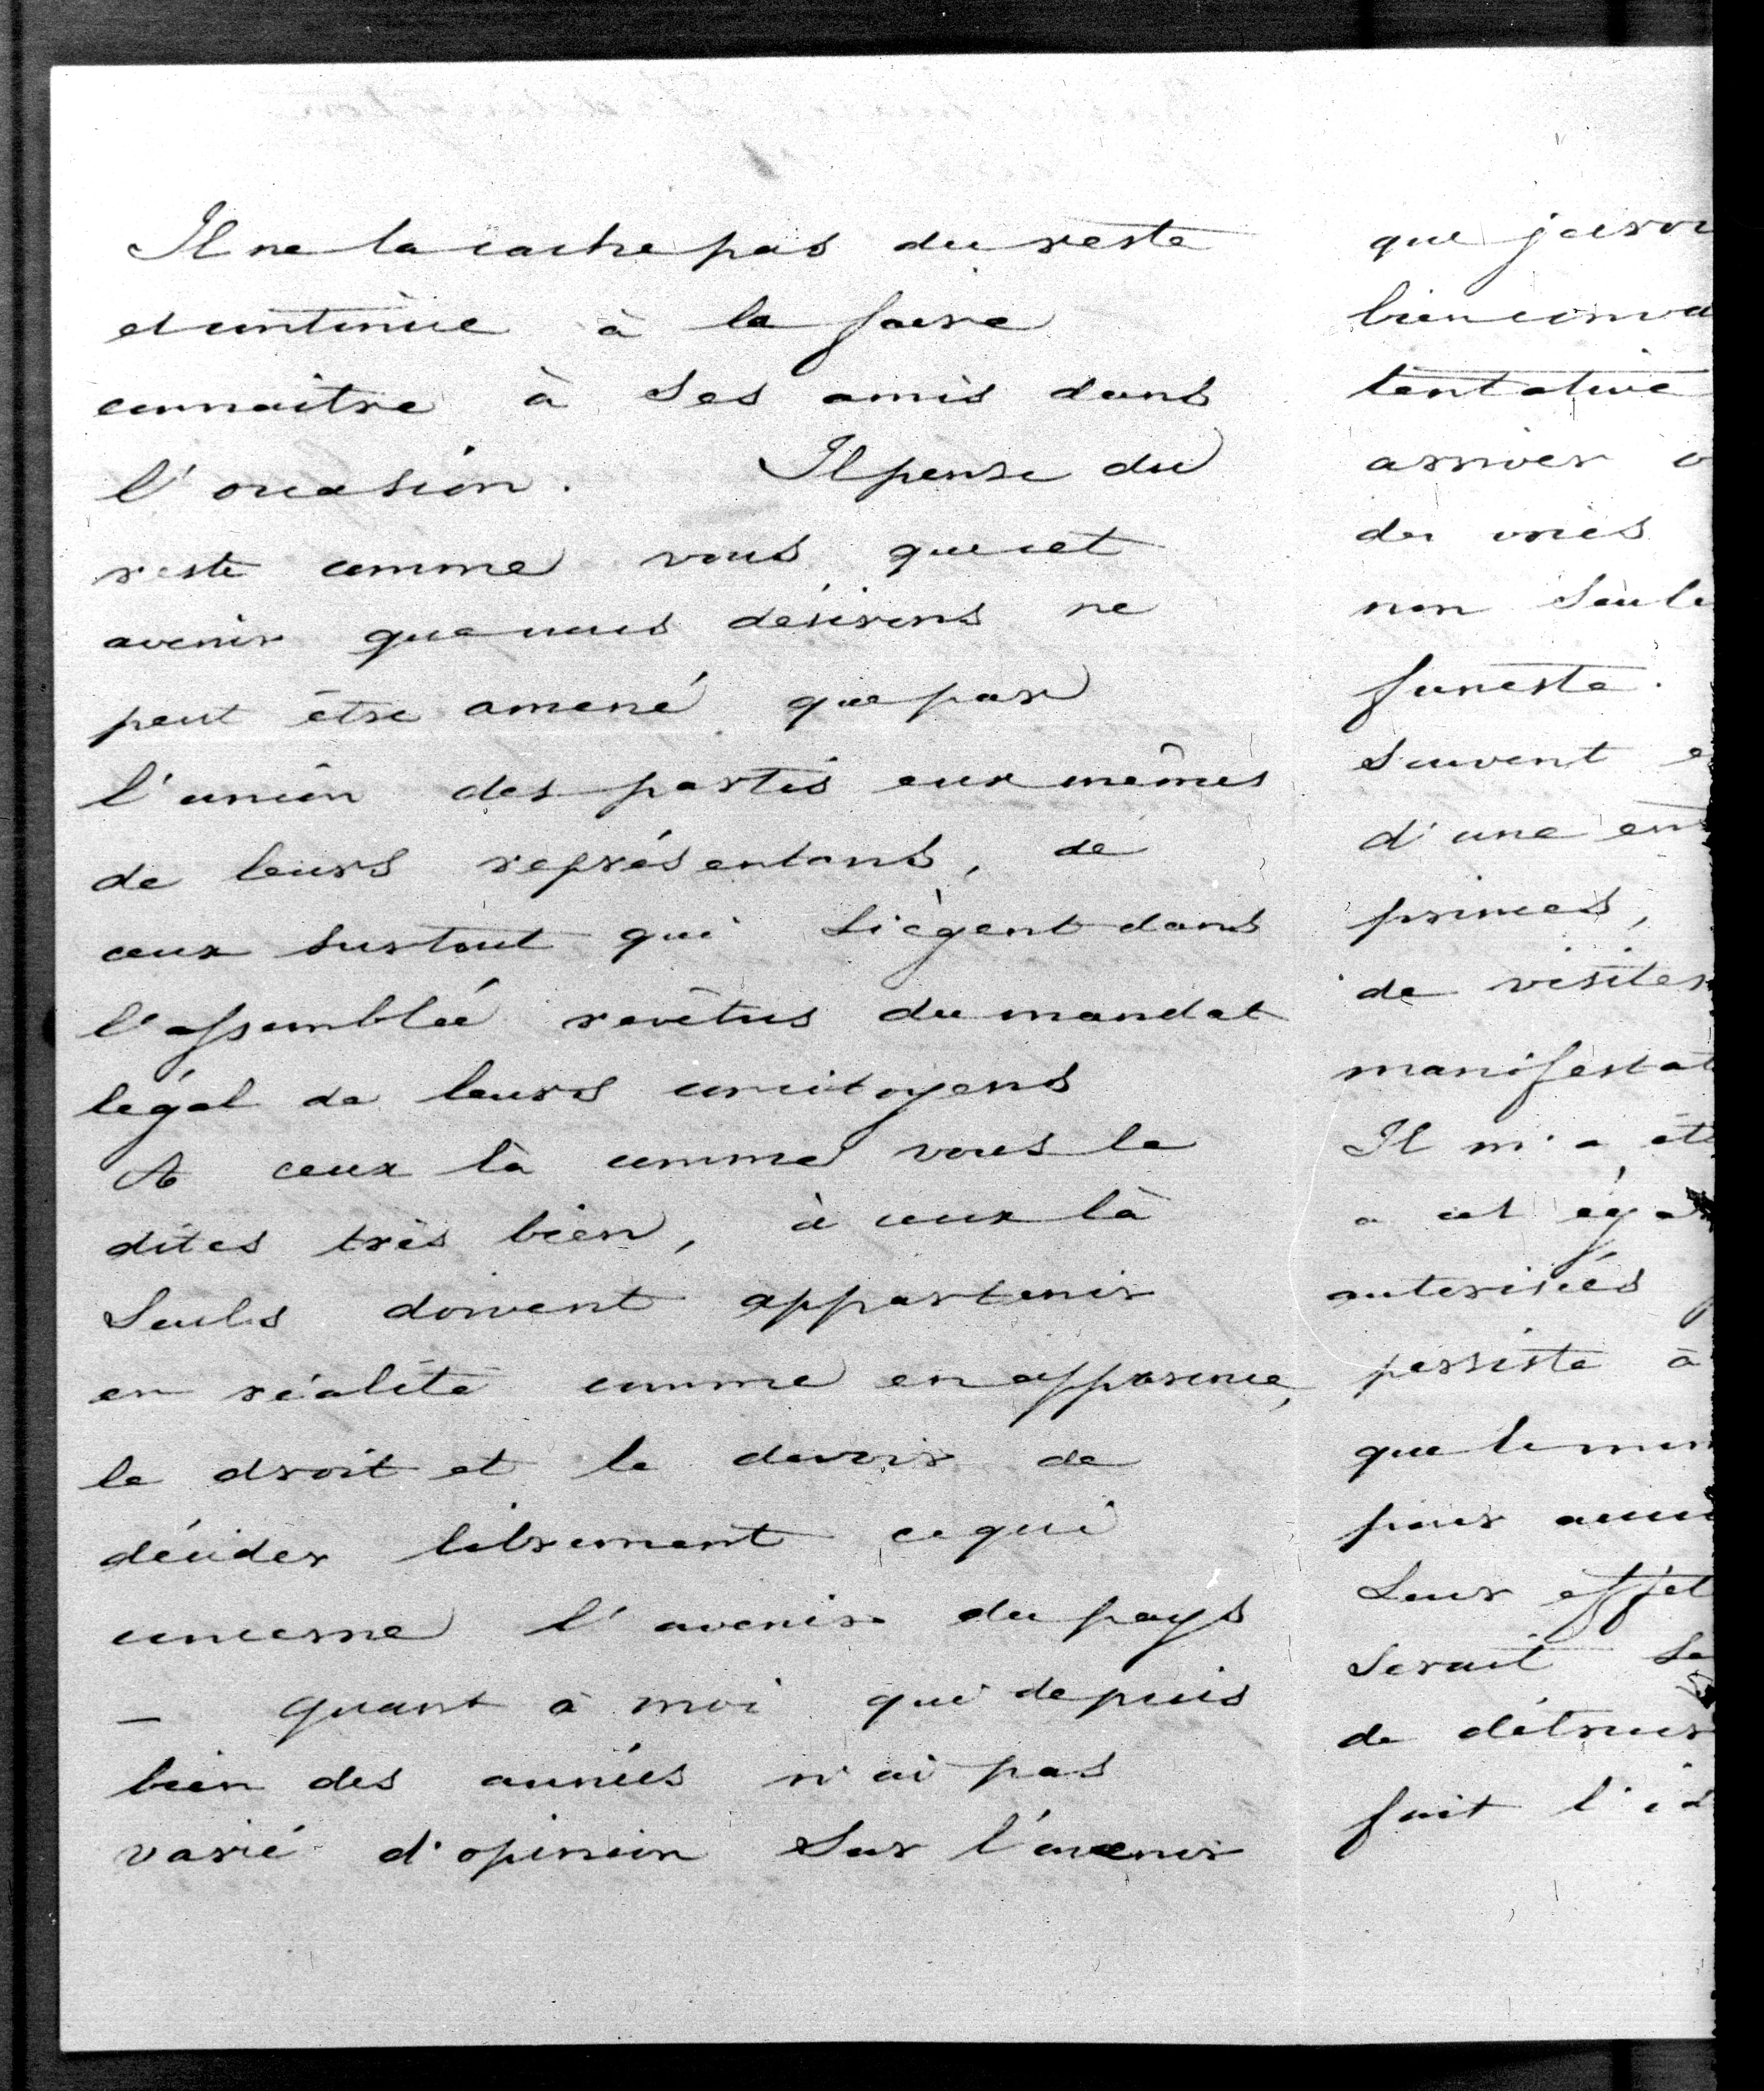 Il ne la cache pas du reste
et continue à la faire
connaitre à ses amis dans
l'occasion. Il pense du
reste comme vous que cet
avenir que nous désirons ne
peut être amené que par
l'union des partis eux mêmes
de leurs représentans, de
ceux surtout qui siègent dans
l'assemblée revêtus du mandat
légal de leurs concitoyens
A ceux là comme vous le
dites très bien, à ceux là
seuls doivent appartenir
en réalité comme en apparence,
le droit et le devoir de
décider librement ce qui
concerne l'avenir du pays
— quant à moi qui depuis
bien des années n'ai pas
varié d'opinion sur l'avenir
que
tentative
arriver
des vries
non
funeste.
souvent
d'une
princes,
de visites
Il m'a
a cet
autorisées
persiste à
que
pour
Leur effet
serait
de
fait